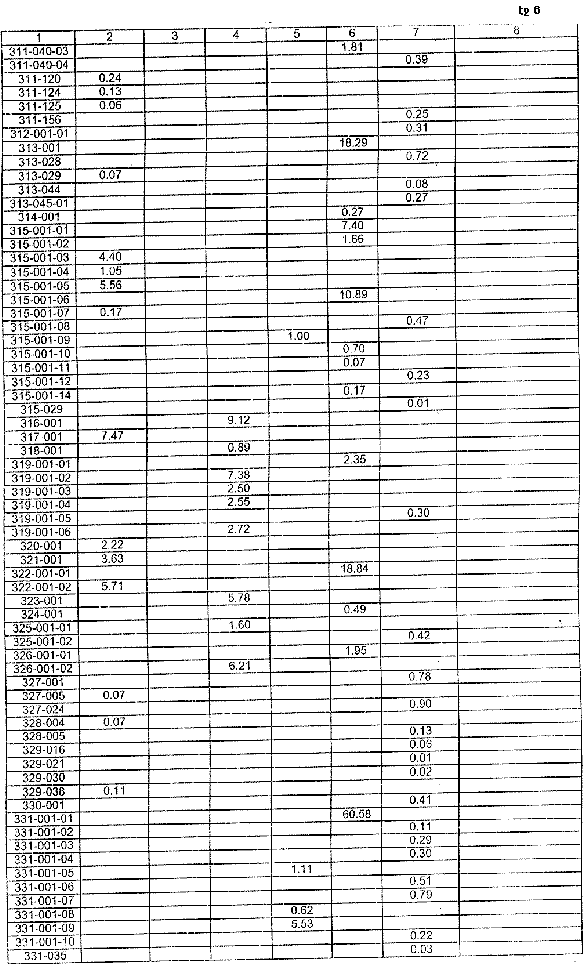 էջ 6
1 2 3 4 5 6 7 8
311-040-03 1.81
311-040-04 0.39
311-120 0.24
311-124 0.13
311-125 0.06
311-156 0.25
312-001-01 0.31
313-001 18.29
313-028 0.72
313-029 0.07
313-044 0.08
313-045-01 0.27
314-001 0.27
315-001-01 7.40
315-001-02 1.66
315-001-03 4.40
315-001-04 1.05
315-001-05 5.56
315-001-06 10.89
315-001-07 0.17
315-001-08 0.47
315-001-09 1.00
315-001-10 0.70
315-001-11 0.07
315-001-12 0.23
315-001-14 0.17
315-029 0.01
316-001 9.12
317-001 7.47
318-001 0.89
319-001-01 2.35
319-001-02 7.38
319-001-03 2.50
319-001-04 2.55
319-001-05 0.30
319-001-06 2.72
320-001 2.22
321-001 3.63
322-001-01 18.84
322-001-02 5.71
323-001 5.78
324-001 0.49
325-001-01 1.60
325-001-02 0.42
326-001-01 1.95
326-001-02 6.21
327-001 0.78
327-005 0.07
327-024 0.90
328-004 0.07
328-005 0.13
329-016 0.06
329-021 0.01
329-030 0.02
329-038 0.11
330-001 0.41
331-001-01 60.58
331-001-02 0.11
331-001-03 0.29
331-001-04 0.30
331-001-05 1.11
331-001-06 0.51
331-001-07 0.79
331-001-08 0.62
331-001-09 5.53
331-001-10 0.22
331-035 0.03